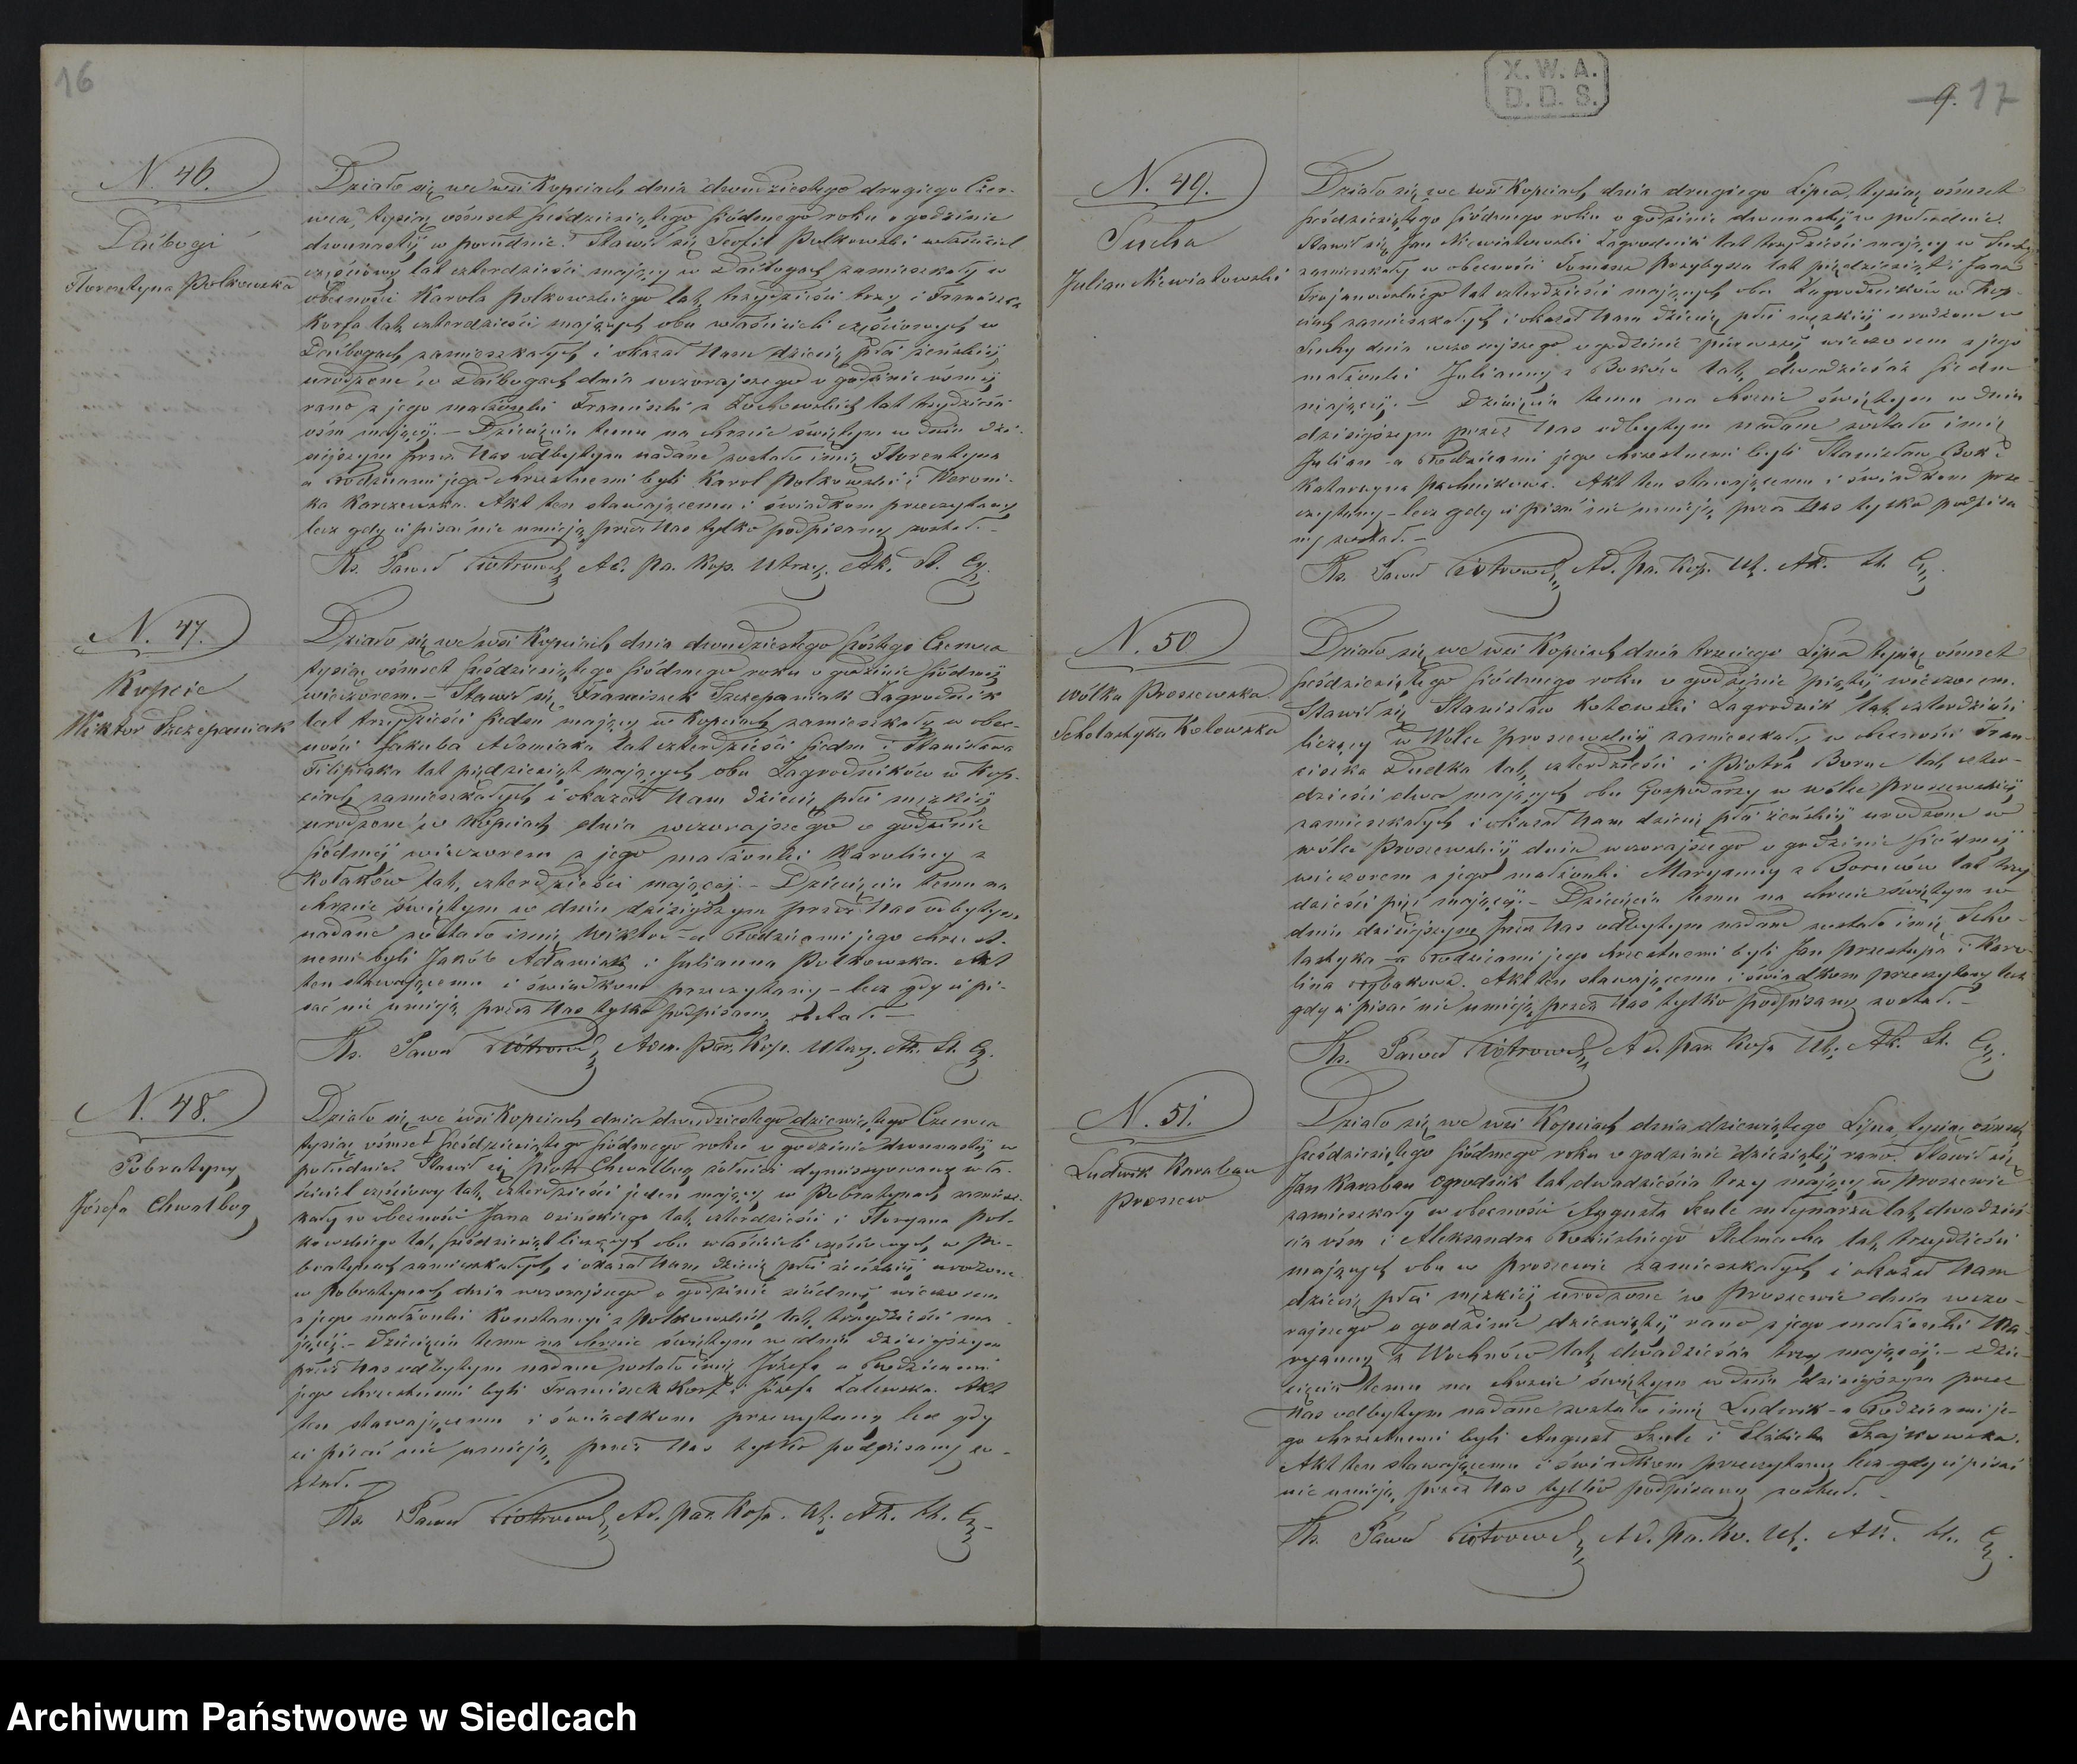 16
N. 46.
Daćbogi
Florentyna Polkowska
Działo się we wsi Kopciach dnia dwudziestego drugiego Czer-
wca tysiąc ośmset sześdziesiątego siódmego roku o godzinie
dwunastéj w południe. Stawił się Teofil Polkowski właściciel
częściowy lat czterdzieści mający w Daćbogach zamieszkały w
obecności Karola Polkowskiego lat trzydzieści trzy i Franciszka
Korfa lat czterdzieści mających obu właścicieli częściowych w
Daćbogach zamieszkałych i okazał Nam dziecię płci żeńskiéj
urodzone w Daćbogach dnia wczorajszego o godzinie ósméj
rano z jego małżonki Franciszki z Żochowskich lat trzydzieści
ośm mającéj. – Dziecięciu temu na chrzcie świętym w dniu dzi-
siejszym przez Nas odbytym nadane zostało imię Florentyna
a Rodzicami jego chrzestnemi byli Karol Polkowski i Weroni-
ka Karczewska. Akt ten stawającemu i świadkom przeczytany
lecz gdy ci pisać nie umieją przez Nas tylko podpisany został. –
Ks. Paweł Piotrowski Ad. Pa. Kop. Utrzy. Ak. St. Cy.
N. 47.
Kopcie
Wiktor Szczepaniak
Działo się we wsi Kopciach dnia dwudziestego szóstego Czerwca
tysiąc ośmset sześdziesiątego siódmego roku o godzinie siódméj
wieczorem. – Stawił się Franciszek Szczepaniak Zagrodnik
lat trzydzieści siedm mający w Kopciach zamieszkały w obec-
ności Jakuba Adamiaka lat czterdzieści siedm i Stanisława
Filipiaka lat pięдziesiąt mających obu Zagrodników w Kop-
ciach zamieszkałych i okazał Nam dziecię płci męzkiéj
urodzone w Kopciach dnia wczorajszego o godzinie
siódméj wieczorem z jego małżonki Karoliny z
Kołaków lat czterdzieści mającéj. – Dziecięciu temu na
chrzcie świętym w dniu dzisiejszym przez Nas odbytym
nadane zostało imię Wiktor – a Rodzicami jego chrzest-
nemi byli Jakób Adamiak i Julianna Polkowska. Akt
ten stawającemu i świadkom przeczytany – lecz gdy ci pi-
sać nie umieją przez Nas tylko podpisany został. –
Ks. Paweł Piotrowski Adm. Par. Kop. Utrzy. Ak. St. Cy.
N. 48.
Pobratymy
Józefa Chwalbog
Działo się we wsi Kopciach dnia dwudziestego dziewiątego Czerwca
tysiąc ośmset sześdziesiątego siódmego roku o godzinie dwunastéj w
południe. Stawił się Piotr Chwalbog żołnierz dymissyowany wła-
ściciel częściowy lat czterdzieści jeden mający w Pobratymach zamiesz-
kały w obecności Jana Osińskiego lat czterdzieści i Floryana Pol-
kowskiego lat sześdziesiąt liczących obu właścicieli częściowych w Po-
bratymach zamieszkałych i okazał Nam dziecię płci żeńskiéj urodzone
w Pobratymach dnia wczorajszego o godzinie siódméj wieczorem
z jego małżonki Konstancyi z Polkowskich lat trzydzieści ma-
jącéj. – Dziecięciu temu na chrzcie świętym w dniu dzisiejszym
przez Nas odbytym nadane zostało imię Józefa a Rodzicami
jego chrzestnemi byli Franciszek Korf i Józefa Zalewska. Akt
ten stawającemu i świadkom przeczytany lecz gdy
ci pisać nie umieją przez Nas tylko podpisany zo-
stał. –
Ks. Paweł Piotrowski Ad. Par. Kop. Ut. Ak. St. Cy.
X. W. A.
D. D. S.
9. 17
N. 49.
Sucha
Julian Niewiadowski
Działo się we wsi Kopciach dnia drugiego Lipca tysiąc ośmset
sześdziesiątego siódmego roku o godzinie dwunastéj w południe
Stawił się Jan Niewiadowski Zagrodnik lat trzydzieści mający w Suchy
zamieszkały w obecności Tomasza Przybysza lat pięćdziesiąt i Jana
Trojanowskiego lat czterdzieści mających obu Zagrodników w Kop-
ciach zamieszkałych i okazał Nam dziecię płci męzkiéj urodzone w
Suchy dnia wczorajszego o godzinie pierwszéj wieczorem z jego
małżonki Julianny z Boków lat dwadzieścia siedm
mającéj. – Dziecięciu temu na chrzcie świętym w dniu
dzisiejszym przez Nas odbytym nadane zostało imię
Julian – a Rodzicami jego chrzestnemi byli Stanisław Bok i
Katarzyna Pachnikowa. Akt ten stawającemu i świadkom prze-
czytany – lecz gdy ci pisać nie umieją przez Nas tylko podpisa
ny został. –
Ks. Paweł Piotrowski Ad. Pa. Kop. Ut. Ak. St. Cy.
N. 50
Wólka Proszewska
Scholastyka Kołowska
Działo się we wsi Kopciach dnia trzeciego Lipca tysiąc ośmset
sześdziesiątego siódmego roku o godzinie piątéj wieczorem.
Stawił się Stanisław Kołowski Zagrodnik lat czterdzieści
liczący w Wólce Proszewskiéj zamieszkały w obecności Fran-
ciszka Dudka lat czterdzieści i Piotra Boruc lat czter-
dzieści dwa mających obu Gospodarzy w Wólce Proszewskiéj
zamieszkałych i okazał Nam dziecię płci żeńskiéj urodzone w
wólce Proszewskiéj dnia wczorajszego o godzinie siódméj
wieczorem z jego małżonki Maryanny z Boruców lat trzy
dzieści pięć mającéj. – Dziecięciu temu na chrzcie świętym w
dniu dzisiejszym przez Nas odbytym nadane zostało imię Scho-
lastyka – a Rodzicami jego chrzestnemi byli Jan Przestupa i Karo-
lina Rybakowa. Akt ten stawającemu i świadkom przeczytany lecz
gdy ci pisać nie umieją przez Nas tylko podpisany został. –
Ks. Paweł Piotrowski Ad. Par. Kop. Ut. Ak. St. Cy.
N. 51.
Ludwik Karaban
Proszew
Działo się we wsi Kopciach dnia dziewiątego Lipca tysiąc ośmset
sześdziesiątego siódmego roku o godzinie dziesiątéj rano. Stawił się
Jan Karaban Ogrodnik lat dwadzieścia trzy mający w Proszewie
zamieszkały w obecności Augusta Szulc młynarza lat dwadzieś-
cia ośm i Aleksandra Stelmacha lat trzydzieści
mających obu w Proszewie zamieszkałych i okazał Nam
dziecię płci męzkiéj urodzone w Proszewie dnia wczo-
rajszego o godzinie dziewiątéj rano z jego małżonki Ma-
ryanny z Wochnów lat dwadzieścia trzy mającéj. – Dzie-
cięciu temu na chrzcie świętym w dniu dzisiejszym przez
Nas odbytym nadane zostało imię Ludwik – a Rodzicami je-
go chrzestnemi byli August Szulc i Elżbieta Szajkowska.
Akt ten stawającemu i świadkom przeczytany lecz gdy ci pisać
nie umieją przez Nas tylko podpisany został. –
Ks. Paweł Piotrowski Ad. Pa. Ko. Ut. Ak. St. Cy.
Archiwum Państwowe w Siedlcach